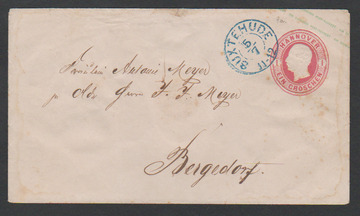 BUXTEHUDE
5/7
11-12
HANNOVER
EIN GROSCHEN
Fräulein Antonie Meyer
Meyer
Bergedorf.